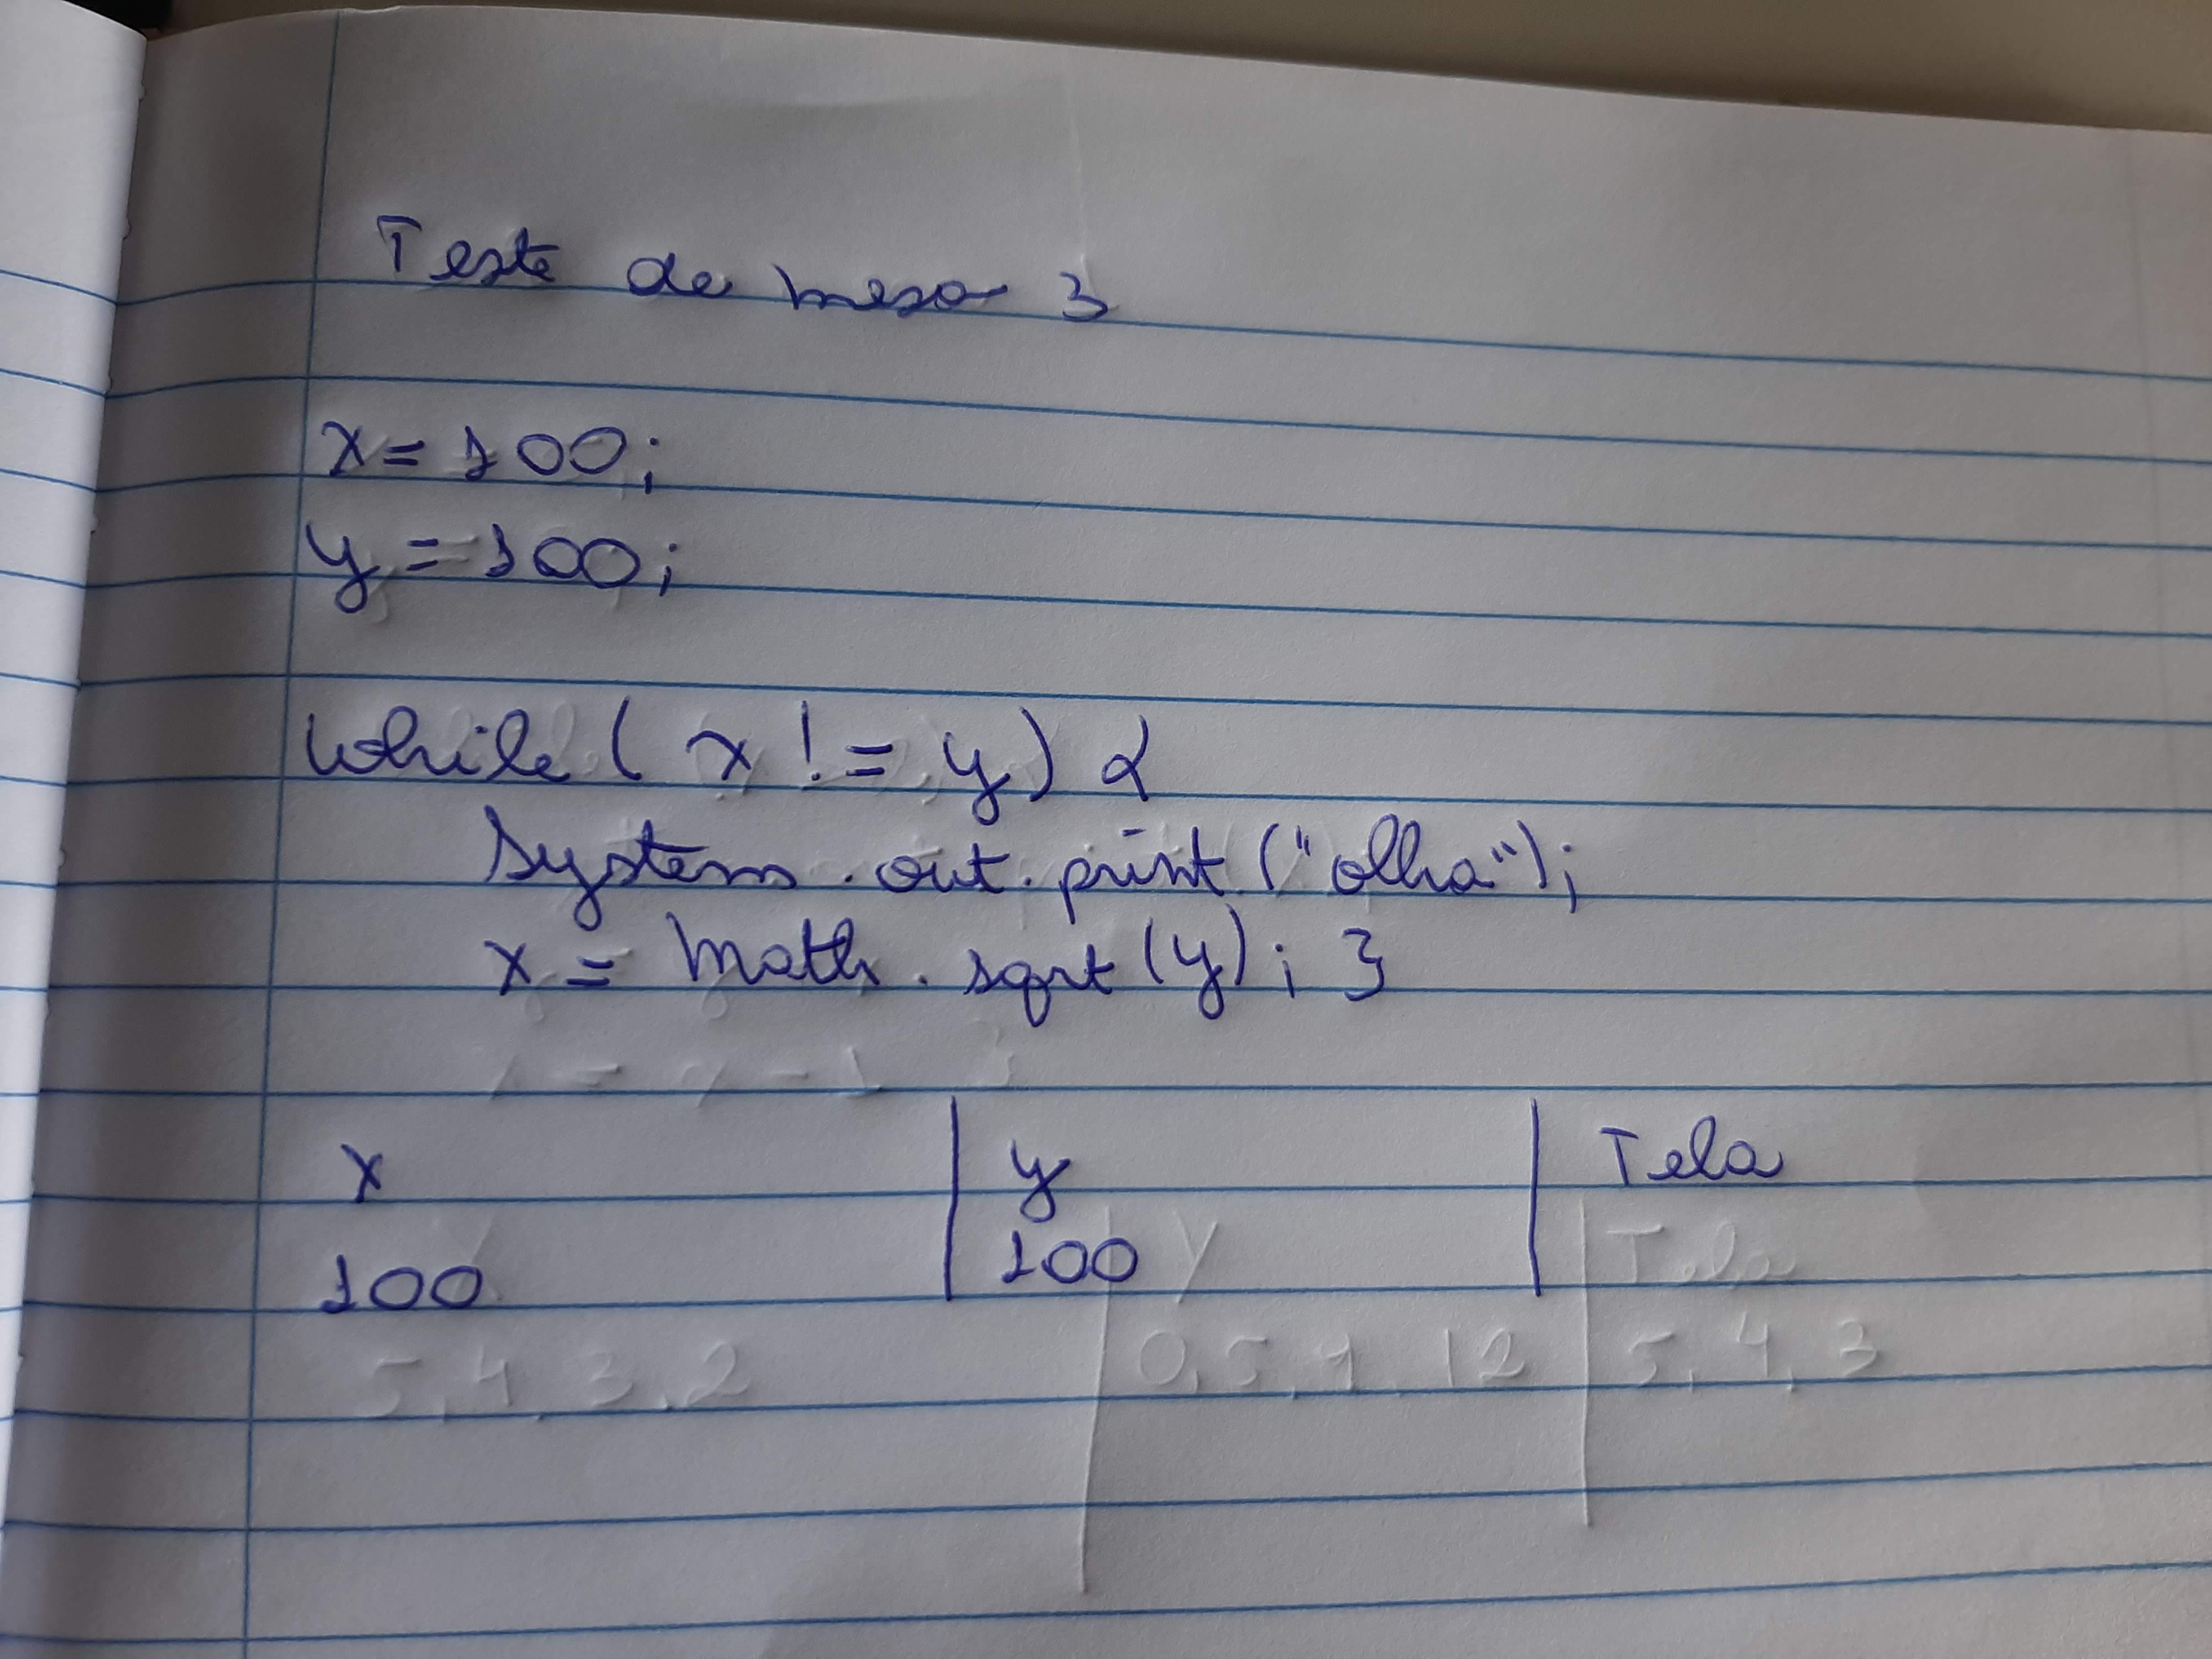 Teste de mesa 3
x = 100;
y = 100;
while ( x != y) {
System.out.print ("olha");
x = Math.sqrt (y); }
x | y | Tela
100 | 100 |